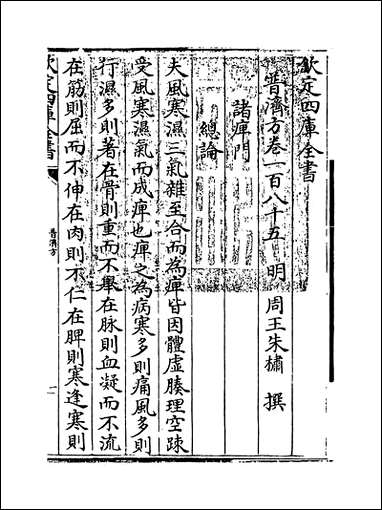 欽定四庫全書
普濟方卷一百八十五　明　周王朱橚　撰
諸痺門
總論
夫風寒濕三氣雜至合而為痺皆因體虛腠理空疎
受風寒濕氣而成痺也痺之為病寒多則痛風多則
行濕多則著在骨則重而不舉在脉則血凝而不流
在筋則屈而不伸在肉則不仁在脾則寒逢寒則
欽定四庫全書
普濟方
一